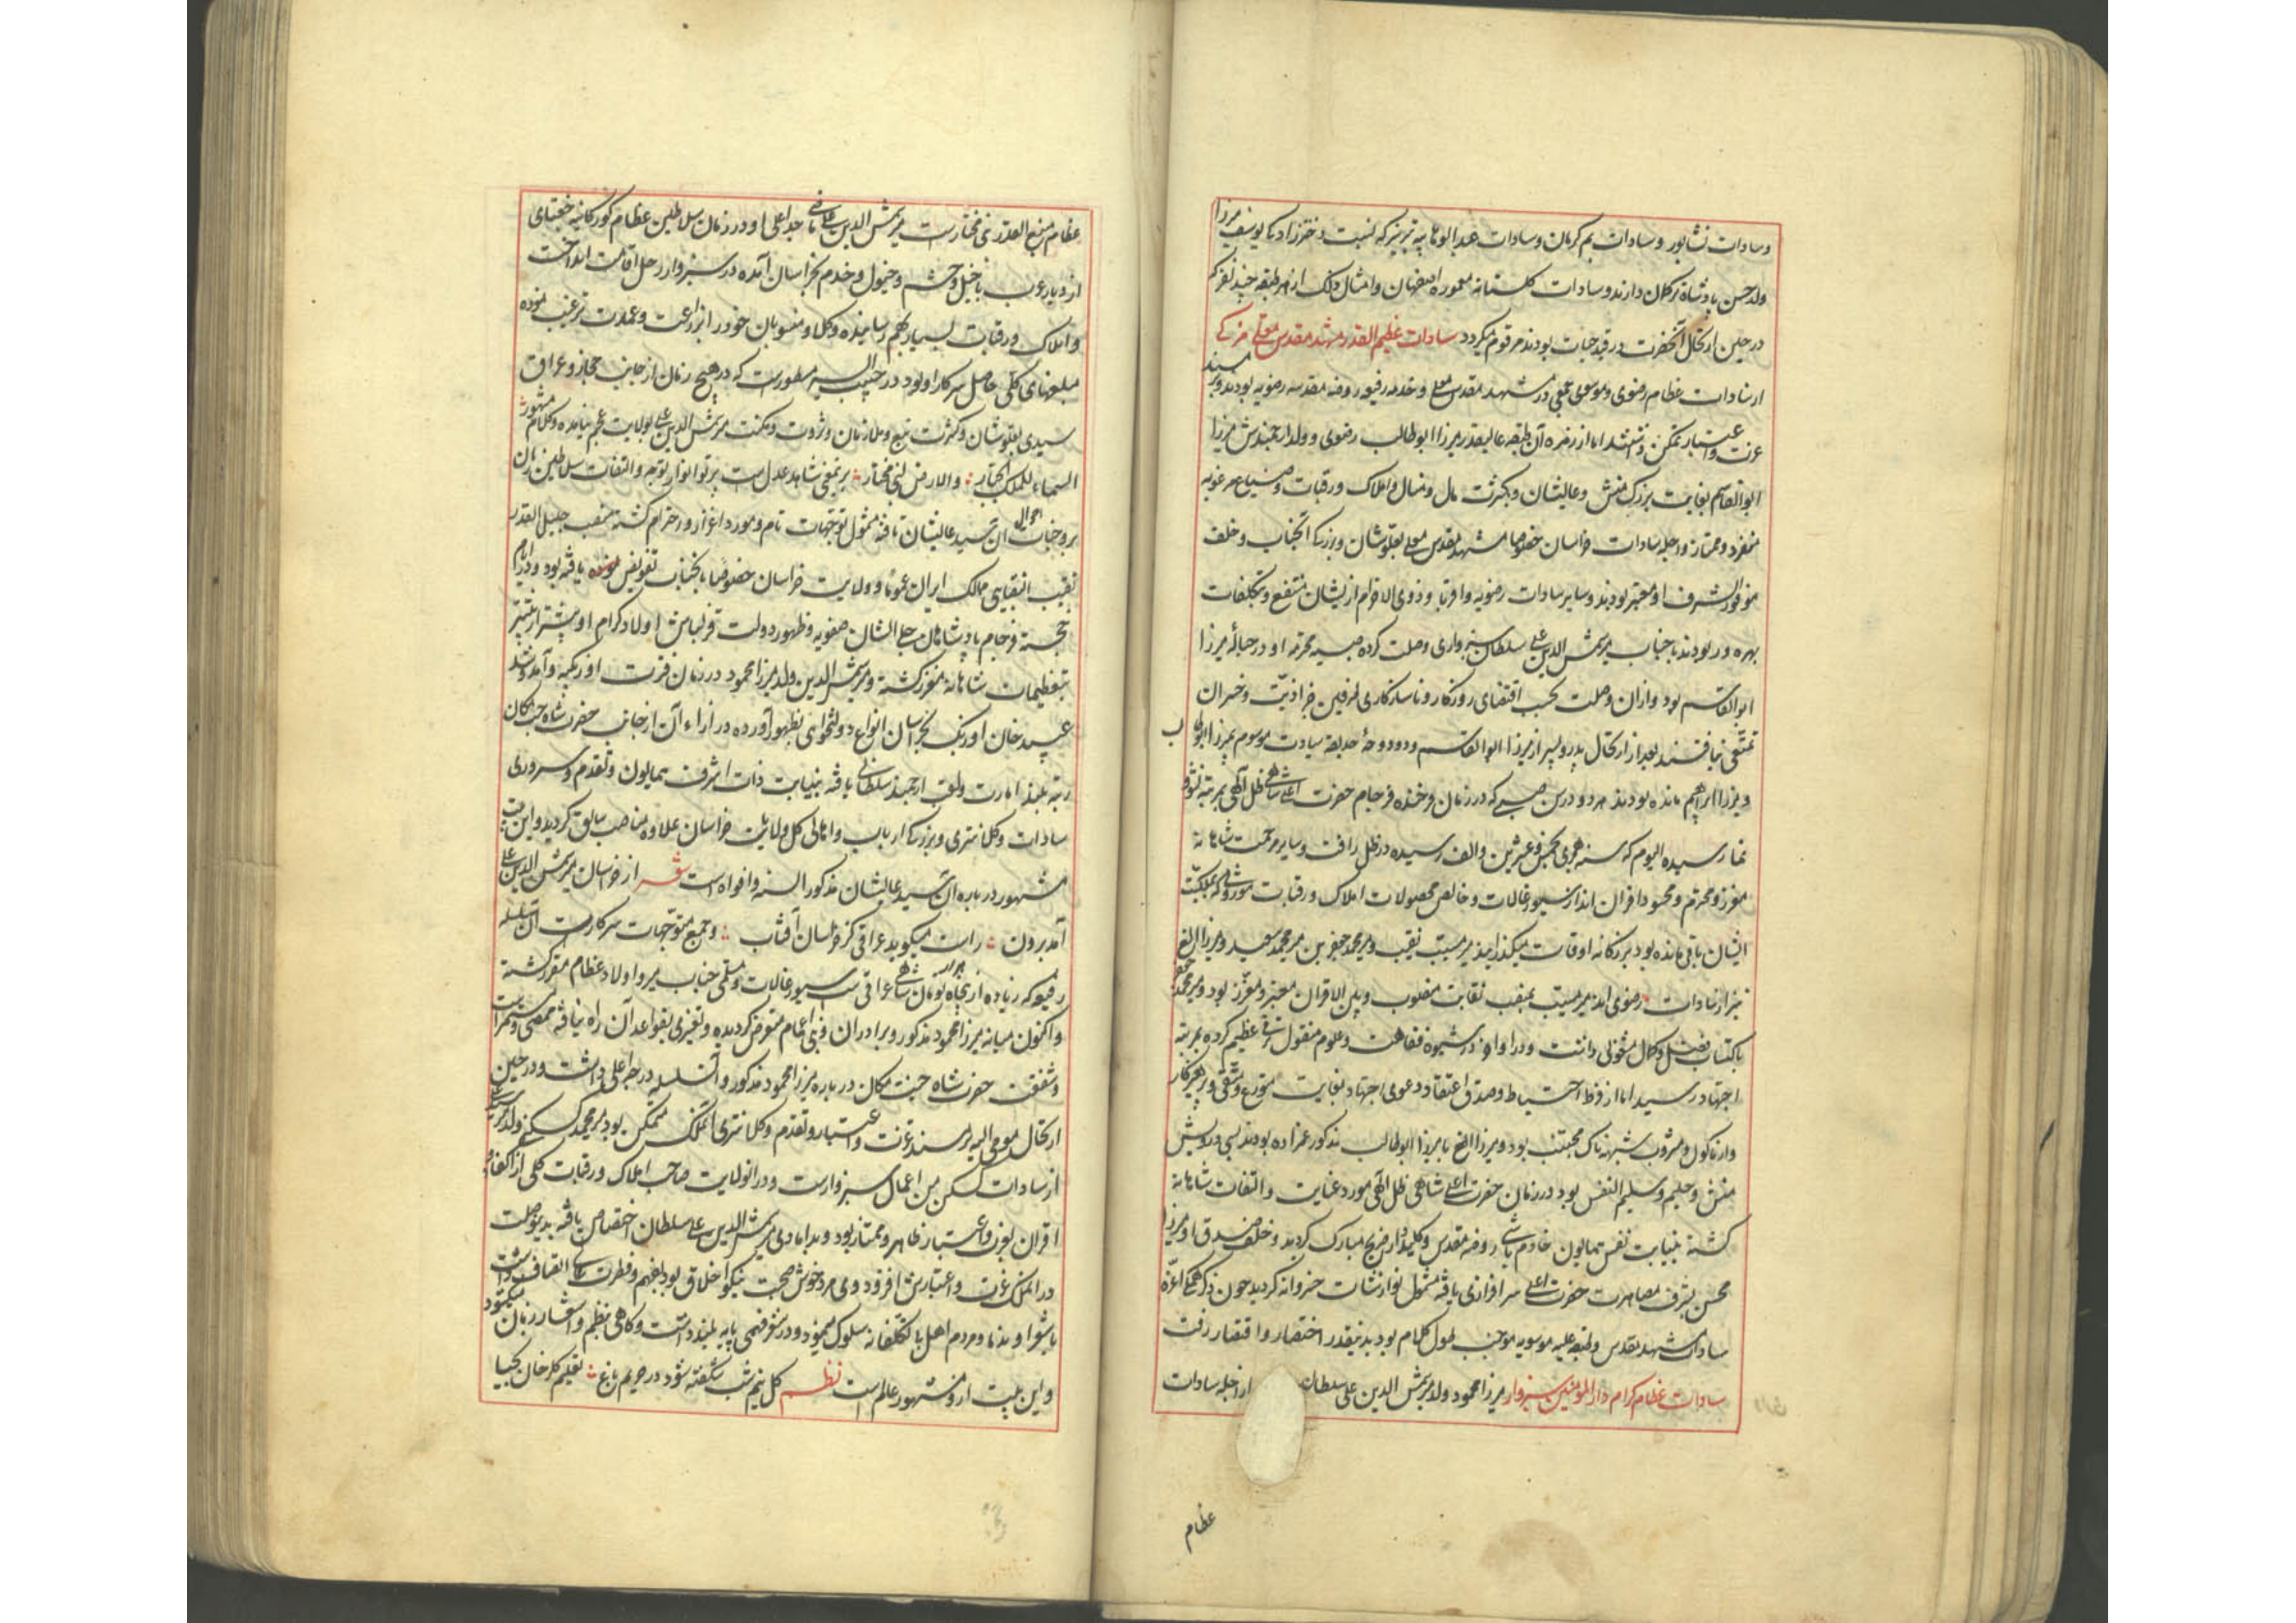 وسادات نشابور وسادات بم کرمان وسادات عبدالوهابیه تبریز که نسبت دخترزادگی یوسف میرزا
ولد حسن پادشاه ترکمان دارند وسادات گلستانه معموره اصفهان وامثال ذلک از هر طبقه چند نفر که
در حین ارتحال آنحضرت در قید حیات بودند مرقوم میگردد سادات عظیم القدر مشهد مقدس معلی مزکی
از سادات عظام رضوی و موسوی جمعی در مشهد مقدس معلی و خدمه رفیعه روضه مقدسه رضویه بودند و بر مسند
عزت واعتبار تمکن داشتند اما از زمره آن طبقه عالیقدر میرزا ابوطالب رضوی و ولد ارجمندش میرزا
ابوالقاسم بغایت بزرگ منش وعالیشان وبکثرت مال ومنال واملاک ورقبات وضیاع مرغوبه
منفرد وممتاز واجله سادات خراسان خصوصا مشهد مقدس معلی بعلو شان وبزرگی آنجناب وخلف
موفور الشرف او معتبر بودند وسایر سادات رضویه واقربا وذوی الارحام از یشان منتفع وبتکلفات
بهره ور بودند با جناب میر شمس الدین علی سلطان سبزواری وصلت کرده صبیه محترمه او در حباله میرزا
ابوالقاسم بود وازان وصلت بحسب اقتضای روزگار وناسازگاری طرفین جز اذیت وخسران
تمتعی نیافتند بعد از ارتحال پدر وپسر از میرزا ابوالقاسم دو دوحه حدیقه سیادت موسوم بمیرزا ابوطالب
ومیرزا ابراهیم مانده بودند هر دو در سن صبی که در زمان فرخنده فرجام حضرت اعلی شاهی ظل اللهی بمرتبه نشو
نما رسیده الیوم که سنه هجری بخمس وعشرین والف رسیده در ظل رافت وسایه مرحمت شاهانه
معزز ومحترم ومحسود اقران اند از سیورغالات وخالص محصولات املاک ورقبات موروثی که بملکیت
ایشان باقی مانده بود بزرگانه اوقات میگذرانیدند میر مسیب نقیب و میر محمد جعفر بن میر محمد سعید ومیرزا الغ
نیز از سادات رضوی اند میر مسیب بمنصب نقابت منصوب وبین الاقران معتبر ومعزز بود ومیر محمد جعفر
باکتساب فضل وکمال مشغولی داشت ودر اواخر در شیوه فقاهت وعلوم منقول ترقی عظیم کرده بمرتبه
اجتهاد رسید اما از فرط احتیاط وصدق اعتقاد دعوی اجتهاد بغایت متورع ومتقی وپرهیزکار
واز ماکول ومشروب شبهه ناک مجتنب بود ومیرزا الغ با میرزا ابوطالب مذکور عمزاده بودند بسی درویش
منش وحلیم وسلیم النفس بود در زمان حضرت اعلی شاهی ظل اللهی مورد عنایت والتفات شاهانه
گشته بنیابت نفس همایون خادم باشی روضه مقدس وکلیددار ضریح مبارک گردید وخلف صدق او میرزا
محسن بشرف مصاهرت حضرت اعلی سرافرازی یافته مشمول نوازشات خسروانه گردید چون ذکر همگی اعزه
سادات مشهد مقدس وطبقه علیه موسویه موجب طول کلام بود بدینقدر اختصار واقتصار رفت
سادات عظام کرام دارالمؤمنین سبزوار میرزا محمود ولد میر شمس الدین علی سلطان از اجله سادات
عظام
عظام منیع القدر بنی مختارست میر شمس الدین علی ثانی جد اعلی او در زمان سلاطین عظام گورکانیه جغتای
از دیار عرب با خیل وحشم وخیول وخدم بخراسان آمده در سبزوار رحل اقامت انداخت
واملاک ورقبات بسیار بهم رسانیده وکلا ومنسوبان خود را بزراعت وعمارت ترغیب نموده
مبلغهای کلی حاصل سرکار او بود در حبیب السیر مسطورست که در هیچ زمان از جانب حجاز وعراق
سیدی بعلو شان وکثرت تبع وملازمان وثروت ومکنت میر شمس الدین علی بولایت عجم نیامده وکلام مشهور
السماء للملک الجبار والارض لبنی مختار بر نمعنی شاهد عدل ست پرتو انوار توجه والتفات سلاطین زمان
بر وجنات احوال آن سید عالیشان تافته مشمول توجهات تام ومورد اعزاز واحترام گشته منصب جلیل القدر
نقیب النقبایی ممالک ایران عموما وولایت خراسان خصوصا بانجناب تفویض یافته بود ودر ایام
خجسته فرجام پادشاهان جلی الشان صفویه وظهور دولت قزلباش اولاد کرام او پیشتر از پیشتر
بتعظیمات شاهانه معزز گشته ومیر شمس الدین ولد میرزا محمود در زمان فترت اوزبکیه وآمد وشد
عبید خان اوزبک بخراسان انواع دولتخواهی بظهور آورده در ازاء آن از جانب حضرت شاه جنت مکان
رتبه بلند امارت ولقب ارجمند سلطانی یافته بنیابت ذات اشرف همایون وتقدم وسروری
سادات وکلانتری وبزرگی ارباب واهالی کل ولایات خراسان علاوه مناصب سابق گردید واین بیت
مشهور در باره آن سید عالیشان مذکور السنه وافواه است شعر از خراسان میر شمس الدین علی
آمد برون راست میگوید عراقی کز خراسان آفتاب وجمع متوجهات سرکارت آن سلسله
رفیعه که زیاده از پنجاه تومان شاهی عراقی ست بسیورغالات ومسلمی جناب میر واولاد عظام مقرر گشته
واکنون میانه میرزا محمود مذکور وبرادران وبنی اعمام مفروض گردیده وتغییری بقواعد آن راه نیافته ممضی ومستمرست
وشفقت حضرت شاه جنت مکان در باره میرزا محمود مذکور وآن سلسله درجه اعلی داشت ودر حین
ارتحال مومی الیه بر مسند عزت واعتبار وتقدم وکلانتری آنملک متمکن بود میر محمد کسکنی ولد میر سید علی
از سادات کسکن من اعمال سبزوارست ودر انولایت صاحب املاک ورقبات کلی از اکفا و
اقران بعزت واعتبار ظاهر وممتاز بود وبدامادی میر شمس الدین علی سلطان اختصاص یافته بدینوصلت
در آنملک عزت واعتبارش افزود وی مرد خوش صحبت نیکو اخلاق بود بفهم وفطرت عالی اتصاف داشت
با شعرا وندما ومردم اهل بی تکلفانه سلوک مینمود ودر شعر فهمی پایه بلند داشت وگاهی بنظم واشعار زبان میگشود
واین بیت ازو مشهور عالم است نظم گل نیم شب شکفته شود در حریم باغ تعلیم گلرخان بحیا